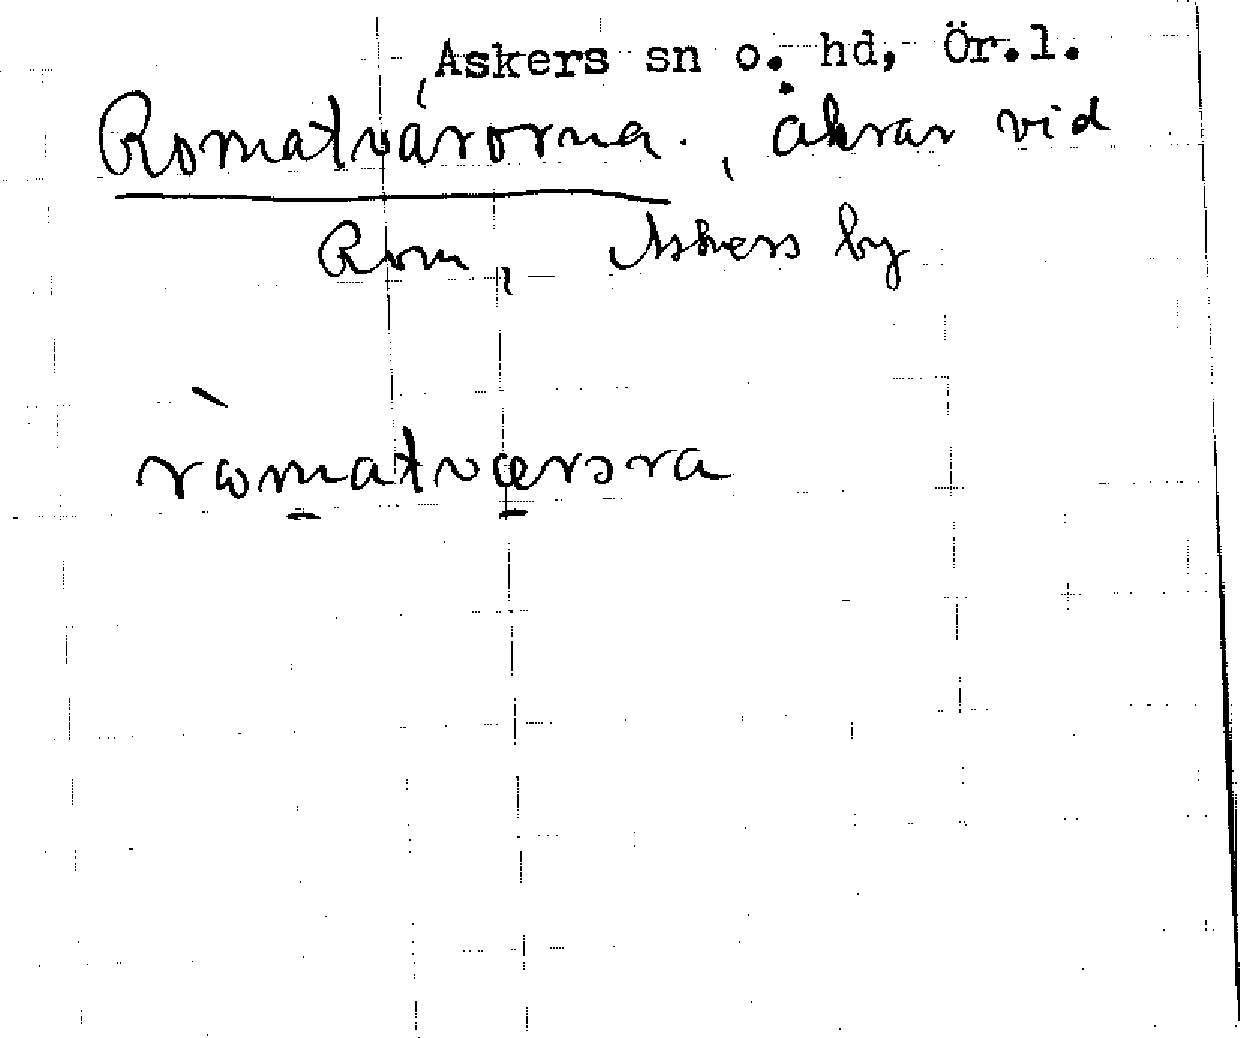 Askers sn o. hd, Ör.l.
Romatvärorna, åkrar vid
Rom, Askers by
ròmatværɔra